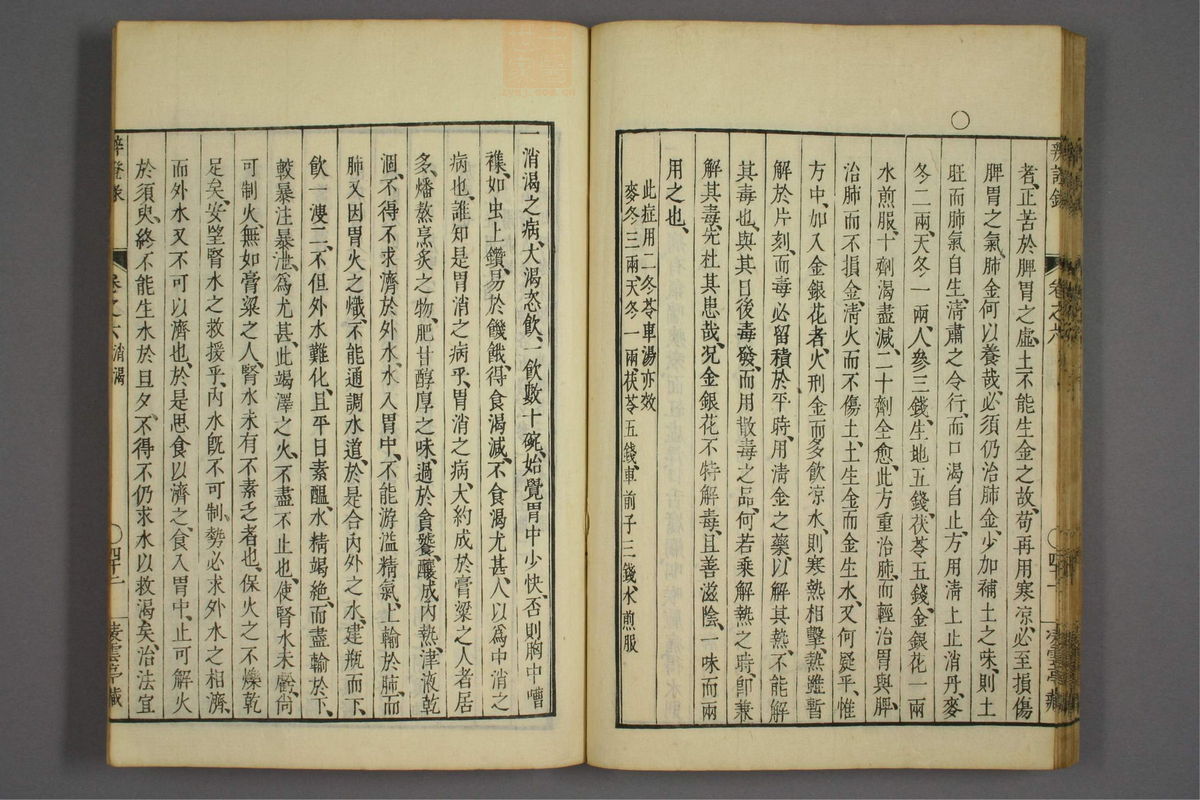 者、正苦於脾胃之虛、土不能生金之故、苟再用寒涼、必至損傷
脾胃之氣、肺金何以養哉、必須仍治肺金、少加補土之味、則土
旺而肺氣自生、清肅之令行、而口渴自止、方用清上止消丹、麥
冬二兩、天冬一兩、人參三錢、生地五錢、茯苓五錢、金銀花一兩
水煎服、十劑渴盡減、二十劑全愈、此方重治肺、而輕治胃與脾、
治肺而不損金、清火而不傷土、土生金而金生水、又何疑乎、惟
方中、加入金銀花者、火刑金而多飲涼水、則寒熱相擊、熱雖暫
解於片刻、而毒必留積於平時、用清金之藥、以解其熱、不能解
其毒也、與其日後毒發、而用散毒之品、何若乘解熱之時、卽兼
解其毒、先杜其患哉、况金銀花不特解毒、且善滋陰、一味而兩
用之也、
此症用二冬苓車湯亦效
麥冬三兩、天冬一兩、茯苓五錢、車前子三錢、水煎服
辨證錄
卷之六
四十一
凌雲亭藏
一消渴之病、大渴恣飲、一飲數十碗、始覺胃中少快、否則胸中嘈
襍、如虫上鑽、易於饑餓、得食渴減、不食渴尤甚、人以爲中消之
病也、誰知是胃消之病乎、胃消之病、大約成於膏粱之人者居
多、燔熬烹炙之物、肥甘醇厚之味、過於貪饕、釀成內熱、津液乾
涸、不得不求濟於外水、水入胃中、不能游溢精氣、上輸於肺、而
肺又因胃火之熾、不能通調水道、於是合內外之水、建瓶而下、
飲一溲二、不但外水難化、且平日素醞、水精竭絶、而盡輸於下、
較暴注暴泄、爲尤甚、此竭澤之火、不盡不止也、使腎水未虧、尙
可制火、無如膏粱之人、腎水未有不素乏者也、保火之不爍乾
足矣、安望腎水之救援乎、內水旣不可制、勢必求外水之相濟、
而外水又不可以濟也、於是思食以濟之、食入胃中、止可解火
於須臾、終不能生水於旦夕、不得不仍求水以救渴矣、治法宜
辨證錄
卷之六 消渴
四十二
凌雲亭藏